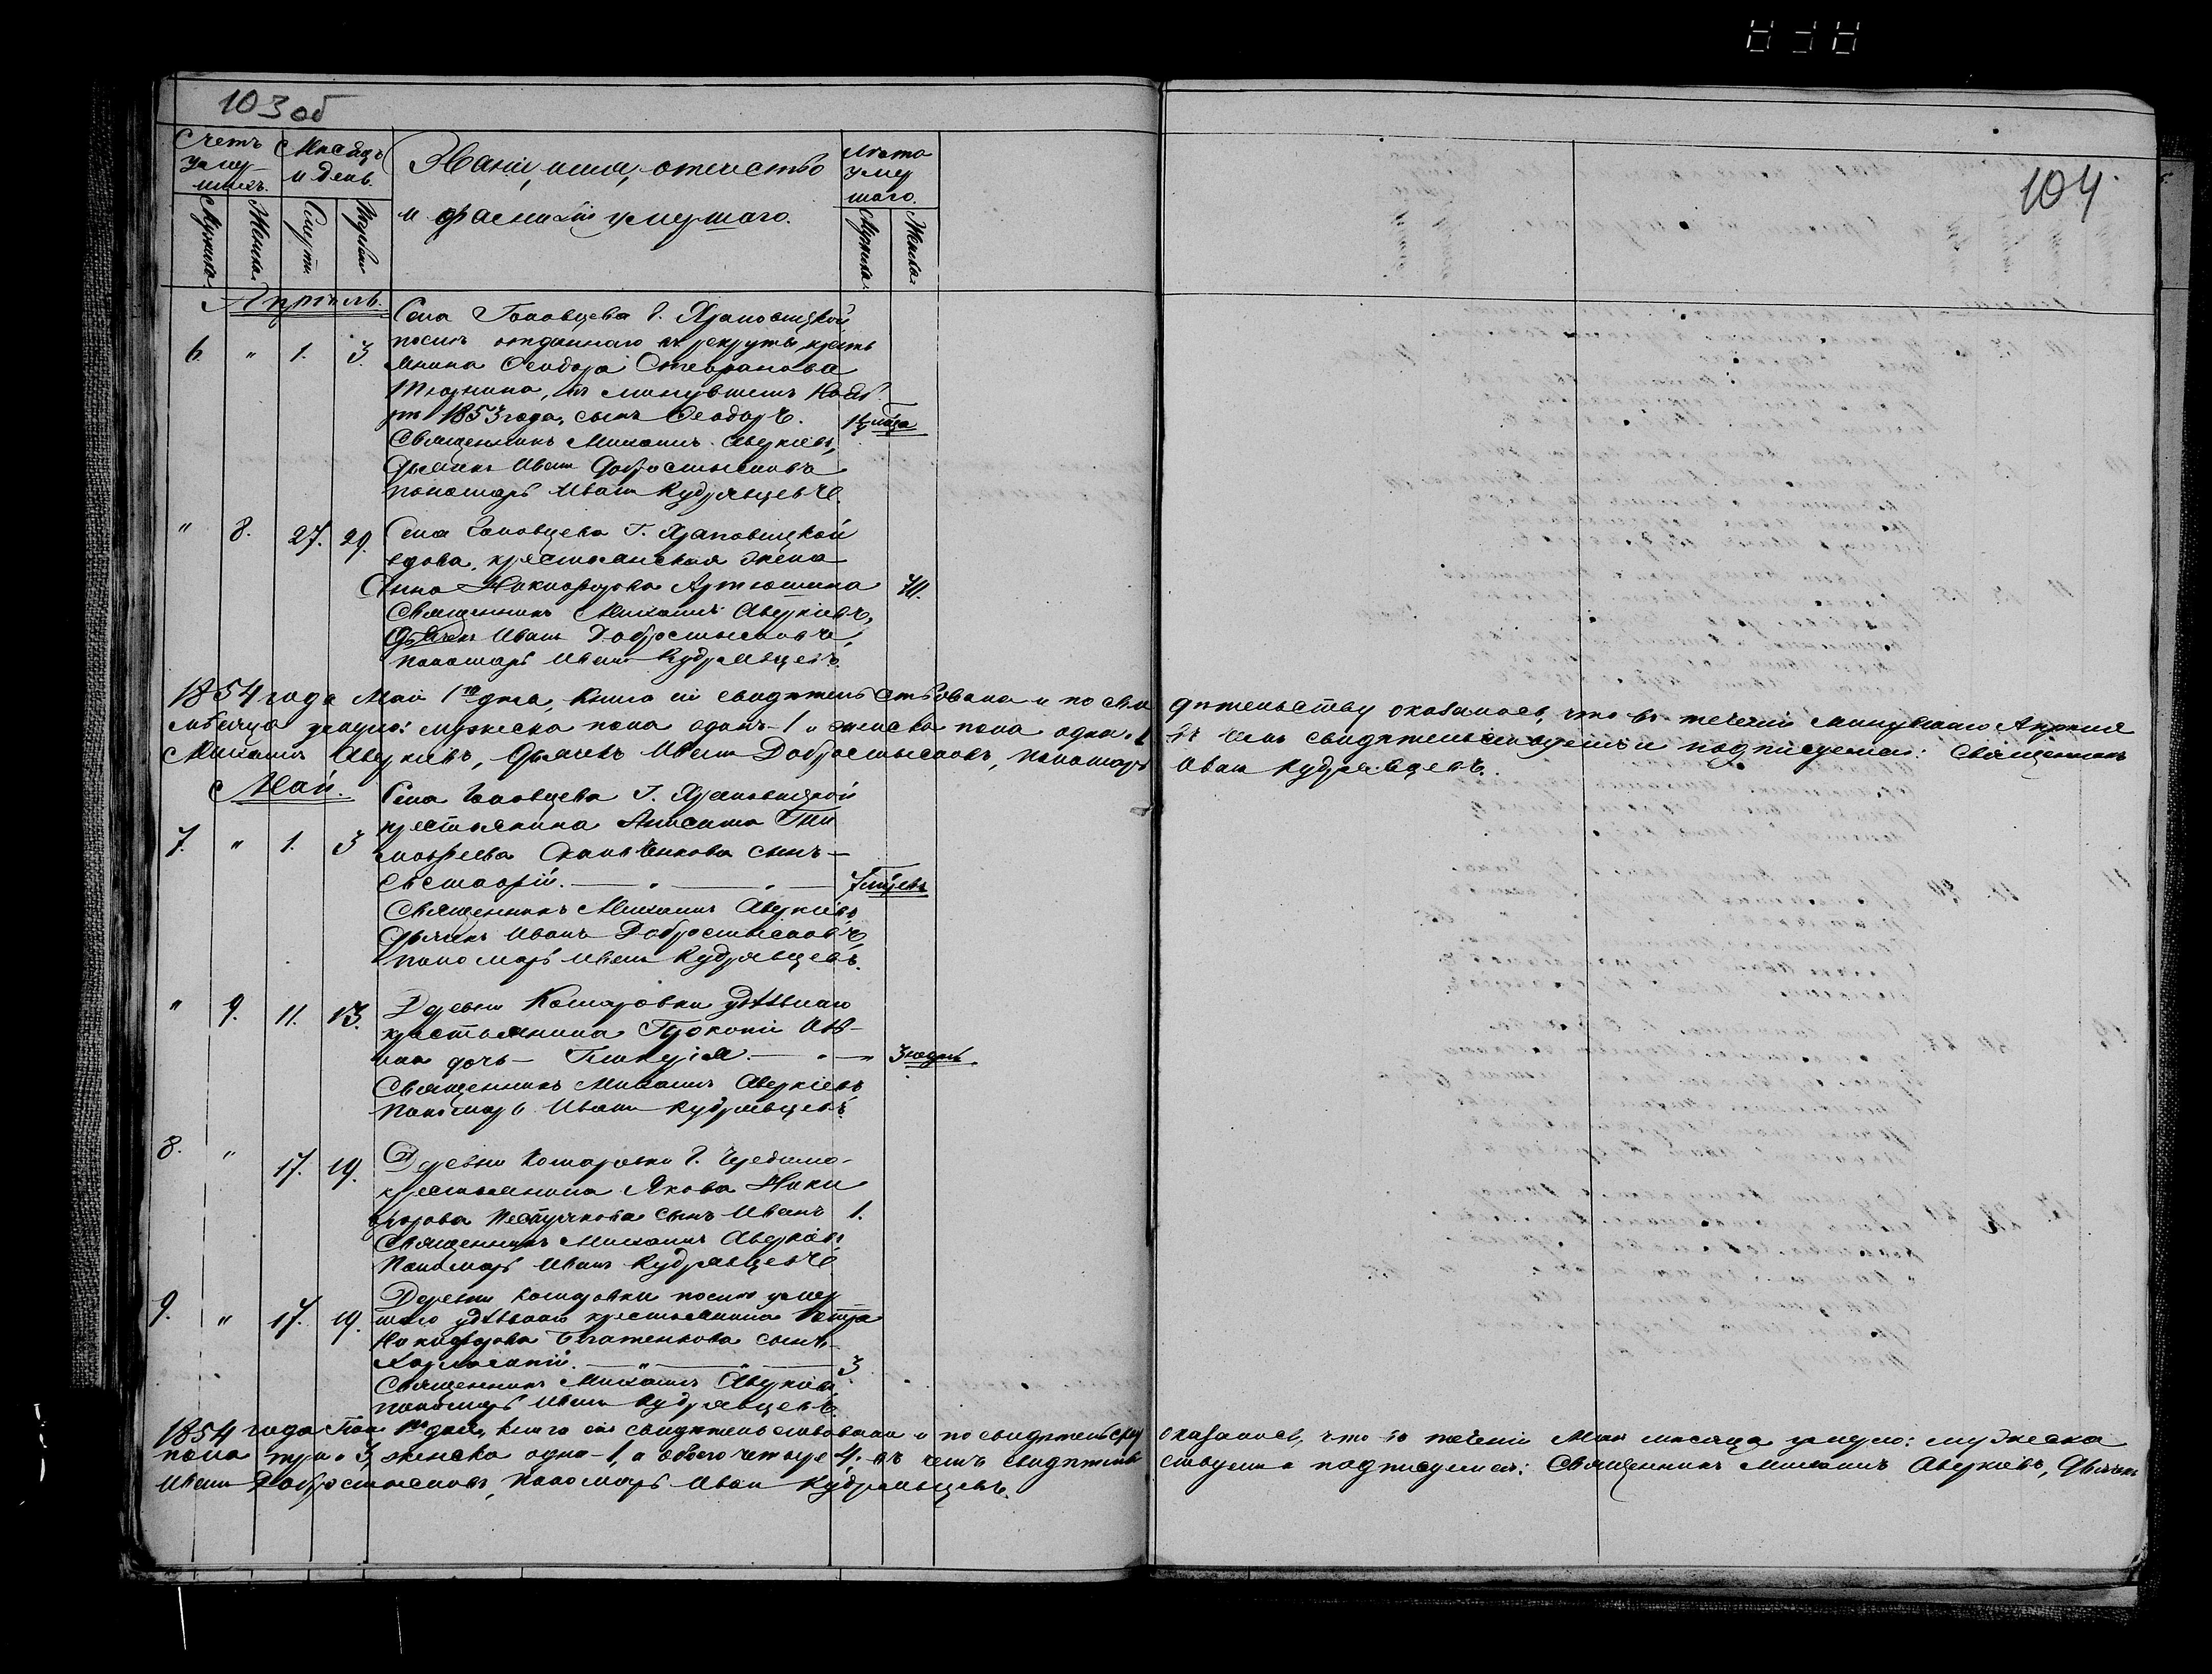 103 об
104
Счетъ умер шихъ.
Месяцъ и день.
Званіе, имя, отчество
и фамилія умершаго.
Лета умер шаго.
Мужеска
Женска
Смерти
Мужеска
Женска
Апрѣль.
6. " 1. 3. Села Головцева г. Храповицкой
после отданнаго въ рекруты, крестъ
янина Ѳеодора Стефанова
въ минувшемъ Нояб
рѣ 1853 года, сынъ Ѳеодоръ.
Священникъ Михаилъ Аверкіевъ,
Дьячекъ Иванъ Добросмысловъ
пономарь Иванъ Кудрявцевъ.
" 8. 27. 29. Села Головцева Г. Храповицкой
вдова, крестьянская жена
Анна Никифорова Артюшина
Священникъ Михаилъ Аверкіевъ,
Дьячекъ Иванъ Добросмысловъ,
пономарь Иванъ Кудрявцевъ.
1854 года Маія 1го дня, книга сія свидѣтельствована и по сви дѣтельству оказалось, что въ теченіи минувшаго Апрѣля
мѣсяца умерло: мужеска пола одинъ - 1 и женска пола одна. 1 въ чемъ свидѣтельствуемъ и подписуемся: Священникъ
Михаилъ Аверкіевъ, Дьячекъ Иванъ Добросмысловъ, пономарь Иванъ Кудрявцевъ.
Маій.
7. " 1. 3 Села Головцева Г. Храповицкой
крестьянина Анисима Ти
моѳеева сынъ —
Священникъ Михаилъ Аверкіевъ
Дьячекъ Иванъ Добросмысловъ,
пономарь Иванъ Кудрявцевъ.
" 9. 11. 13. Деревни Комаровки удѣльнаго
крестьянина Прокопія
дочь — Гликерія. — " — " 3 недѣль
Священникъ Михаилъ Аверкіевъ
Пономарь Иванъ Кудрявцевъ.
8. " 17. 19. Деревни Комаровки г.
крестьянина Якова Ники
форова сынъ Иванъ 1.
Священникъ Михаилъ Аверкіевъ
Пономарь Иванъ Кудрявцевъ
9. " 17. 19. Деревни Комаровки после умер
шаго удѣльнаго крестьянина Петра
Никифорова сынъ
Харлампій. — " — " — 3.
Священникъ Михаилъ Аверкіевъ
пономарь Иванъ Кудрявцевъ.
1854 года дня, книга сія свидѣтельствована и по свидѣтельству оказалось, что въ теченіи Мая месяца умерло: мужеска
пола три - 3, женска одна - 1, а обоего четыре 4. въ чемъ свидѣтель ствуемъ и подписуемся: Священникъ Михаилъ Аверкіевъ, Дьячекъ
Иванъ Добросмысловъ, пономарь Иванъ Кудрявцевъ.